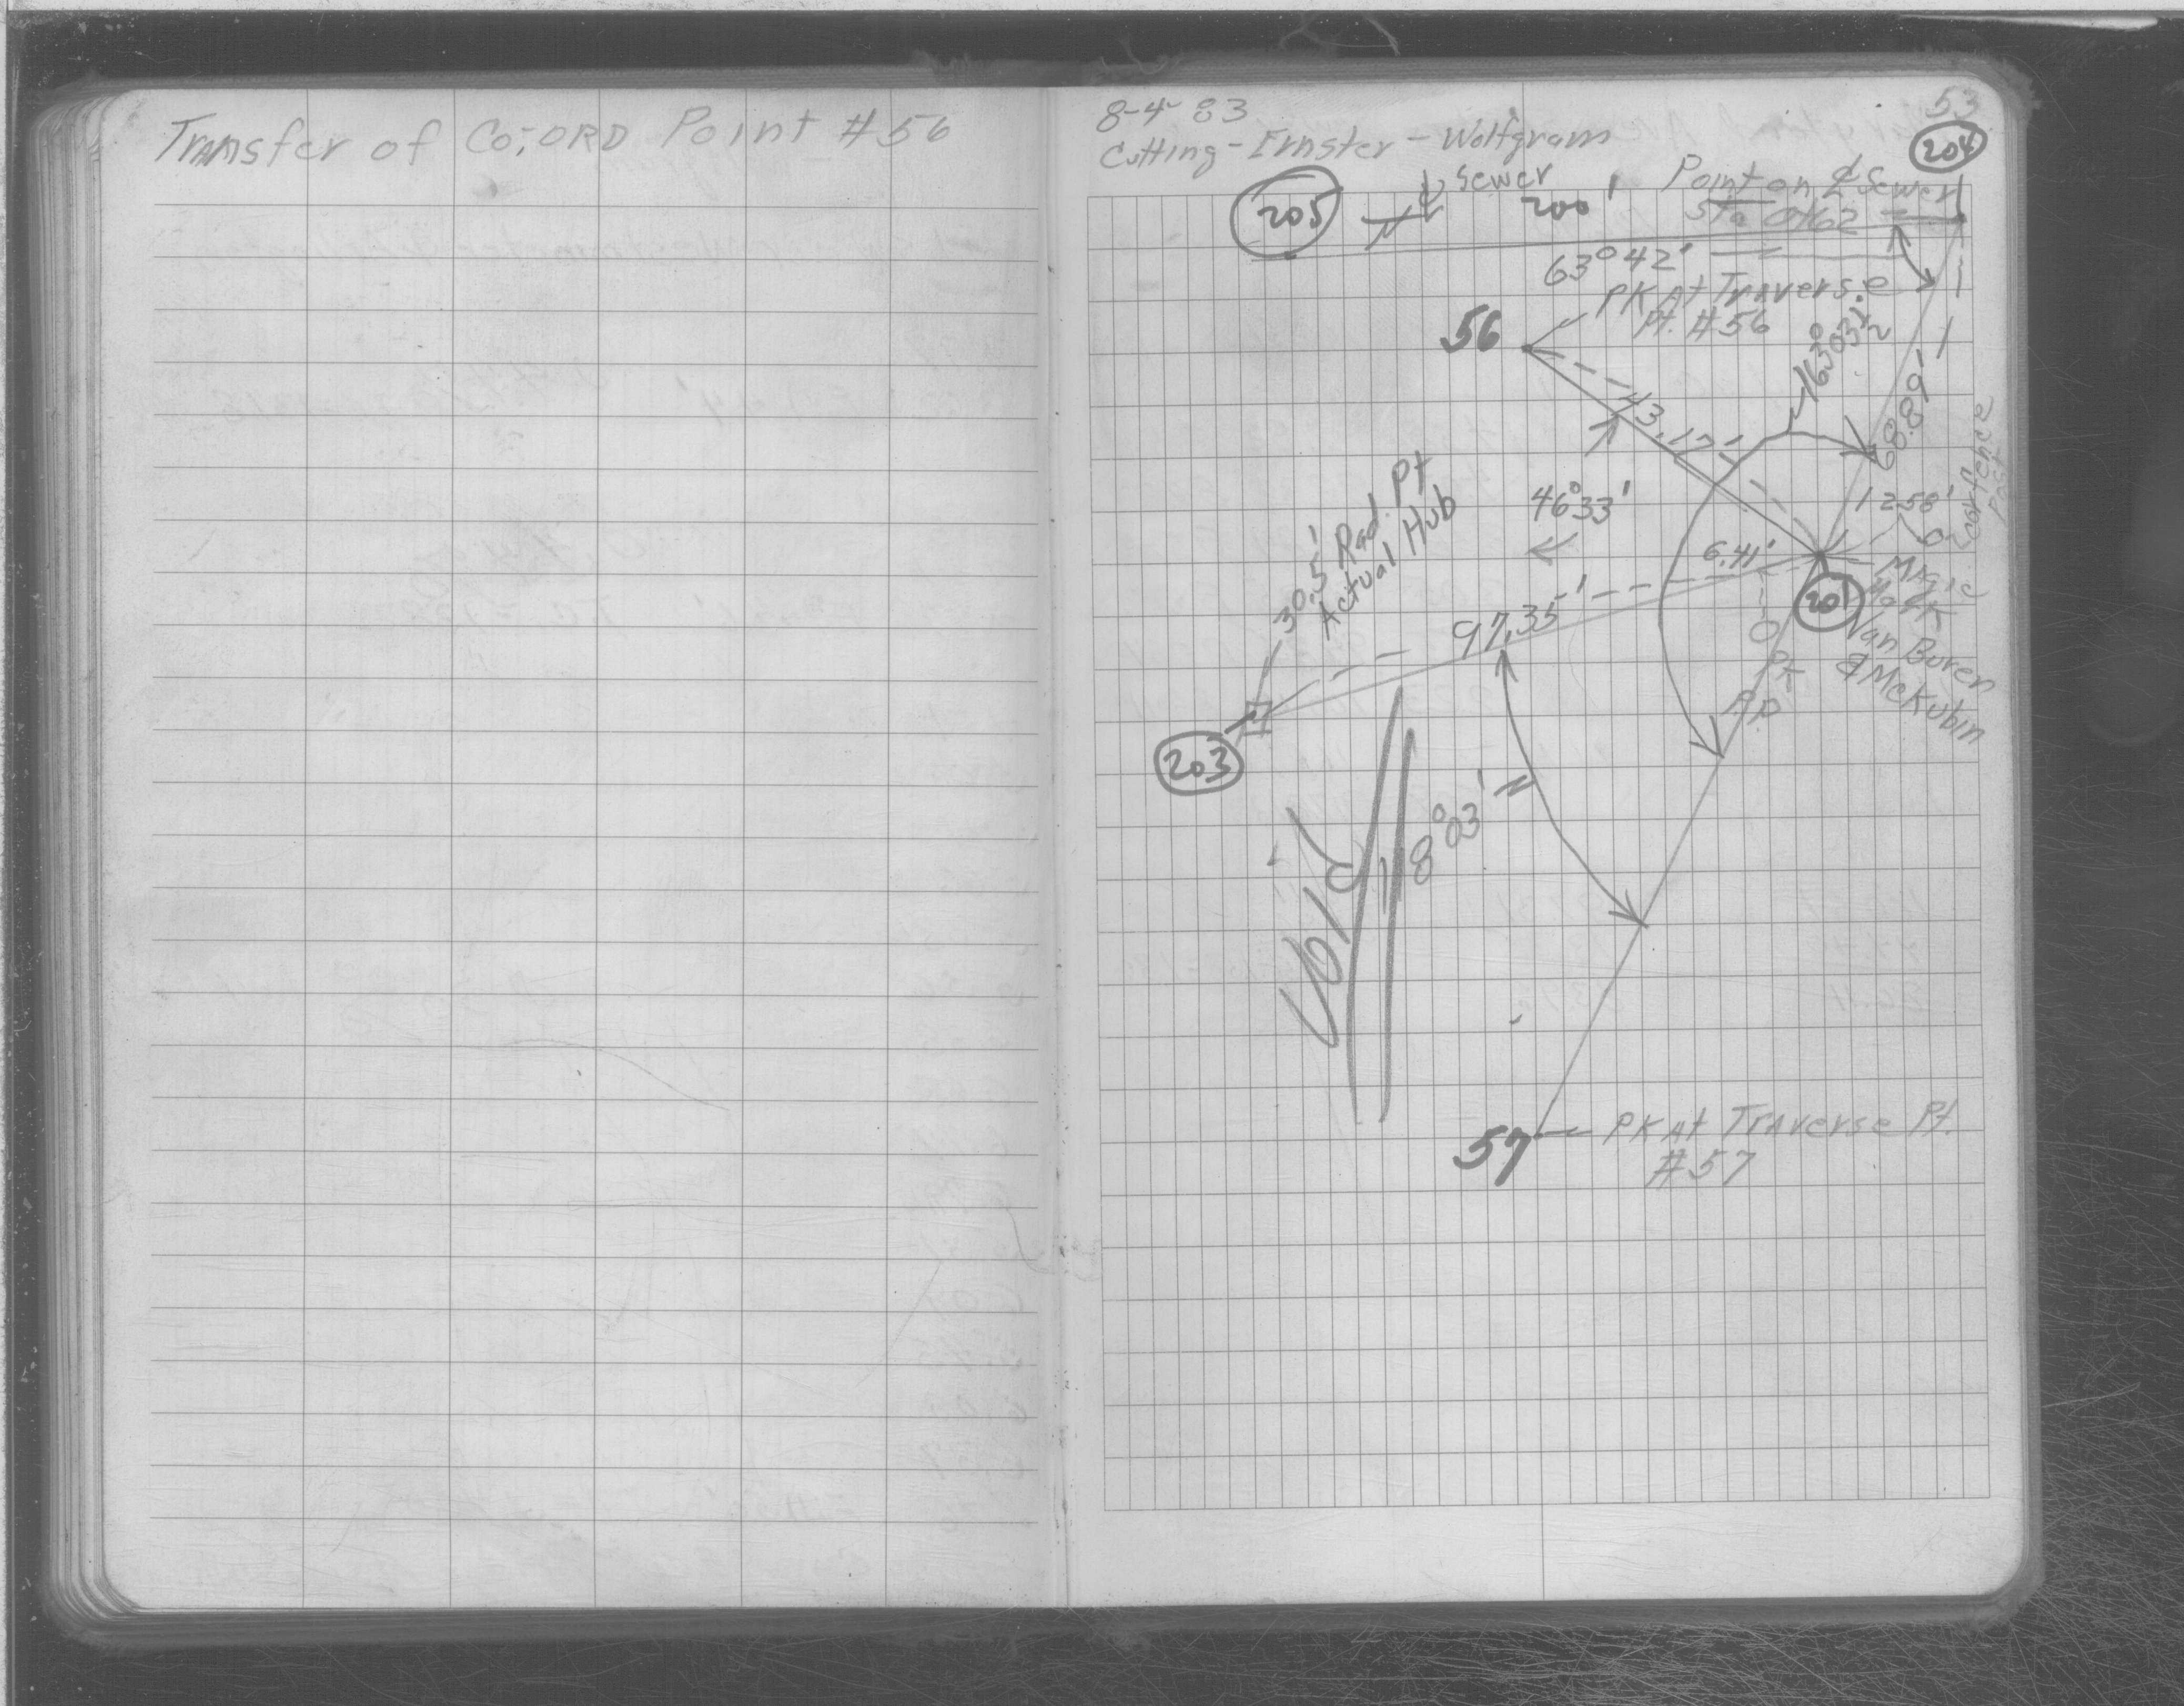 Transfer of Co:ORD Point #56
8-4-83
53
Cutting - Ernster - Wolfgram
204
205
℄ Sewer
200'
Point on ℄ Sewer
Sta 0+62
63°42'
PK At Traverse
Pt. #56
56
163°03½
43.17'
68.89'
46°33'
12.58'
Cor fence
Post
30.5' Rad. Pt
Actual Hub
6.41'
97.35'
Magic
Mark
201
Van Buren
& McKubin
PK
P.P.
203
Void
118°03'
57
PK At Traverse Pt.
#57